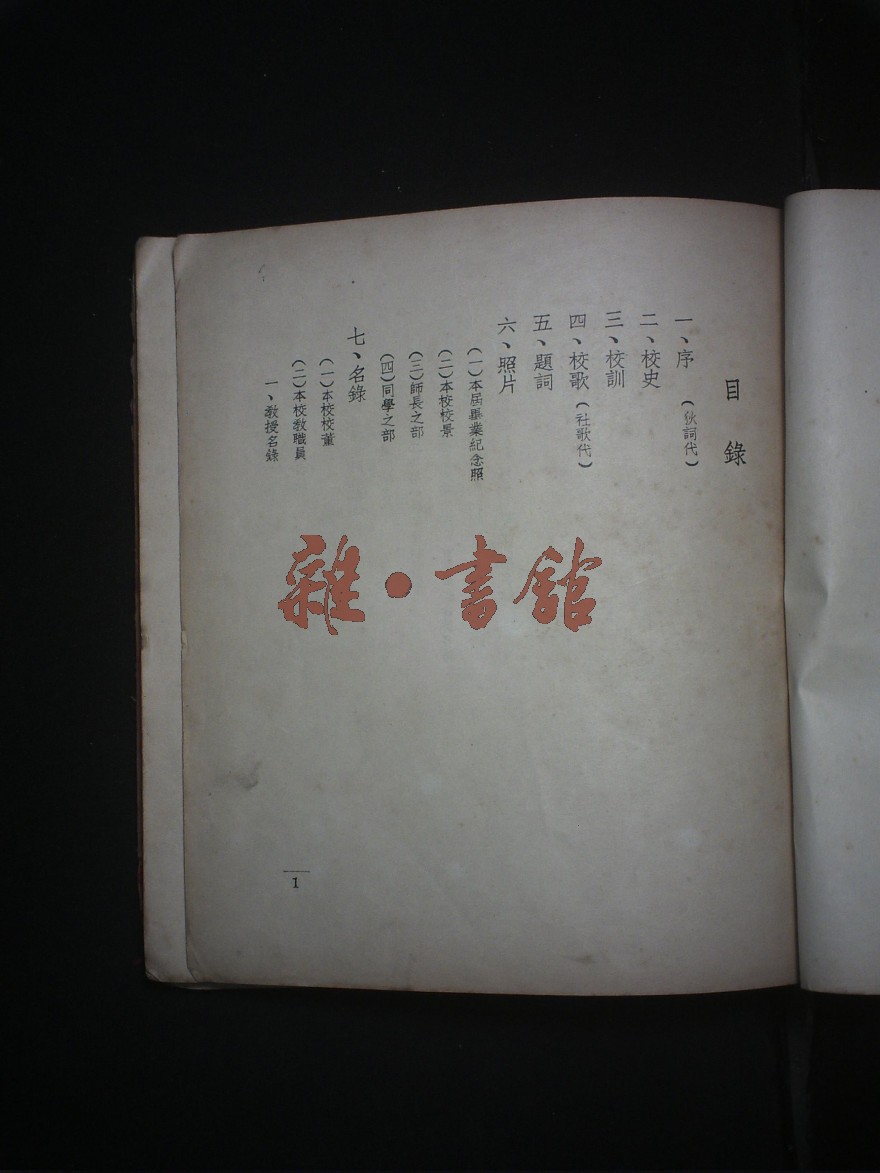 目錄
一、序（狄詞代）
二、校史
三、校訓
四、校歌（社歌代）
五、題詞
六、照片
（一）本屆畢業紀念照
（二）本校校景
（三）師長之部
（四）同學之部
七、名錄
（一）本校校董
（二）本校教職員
一、教授名錄
1
雜·書館